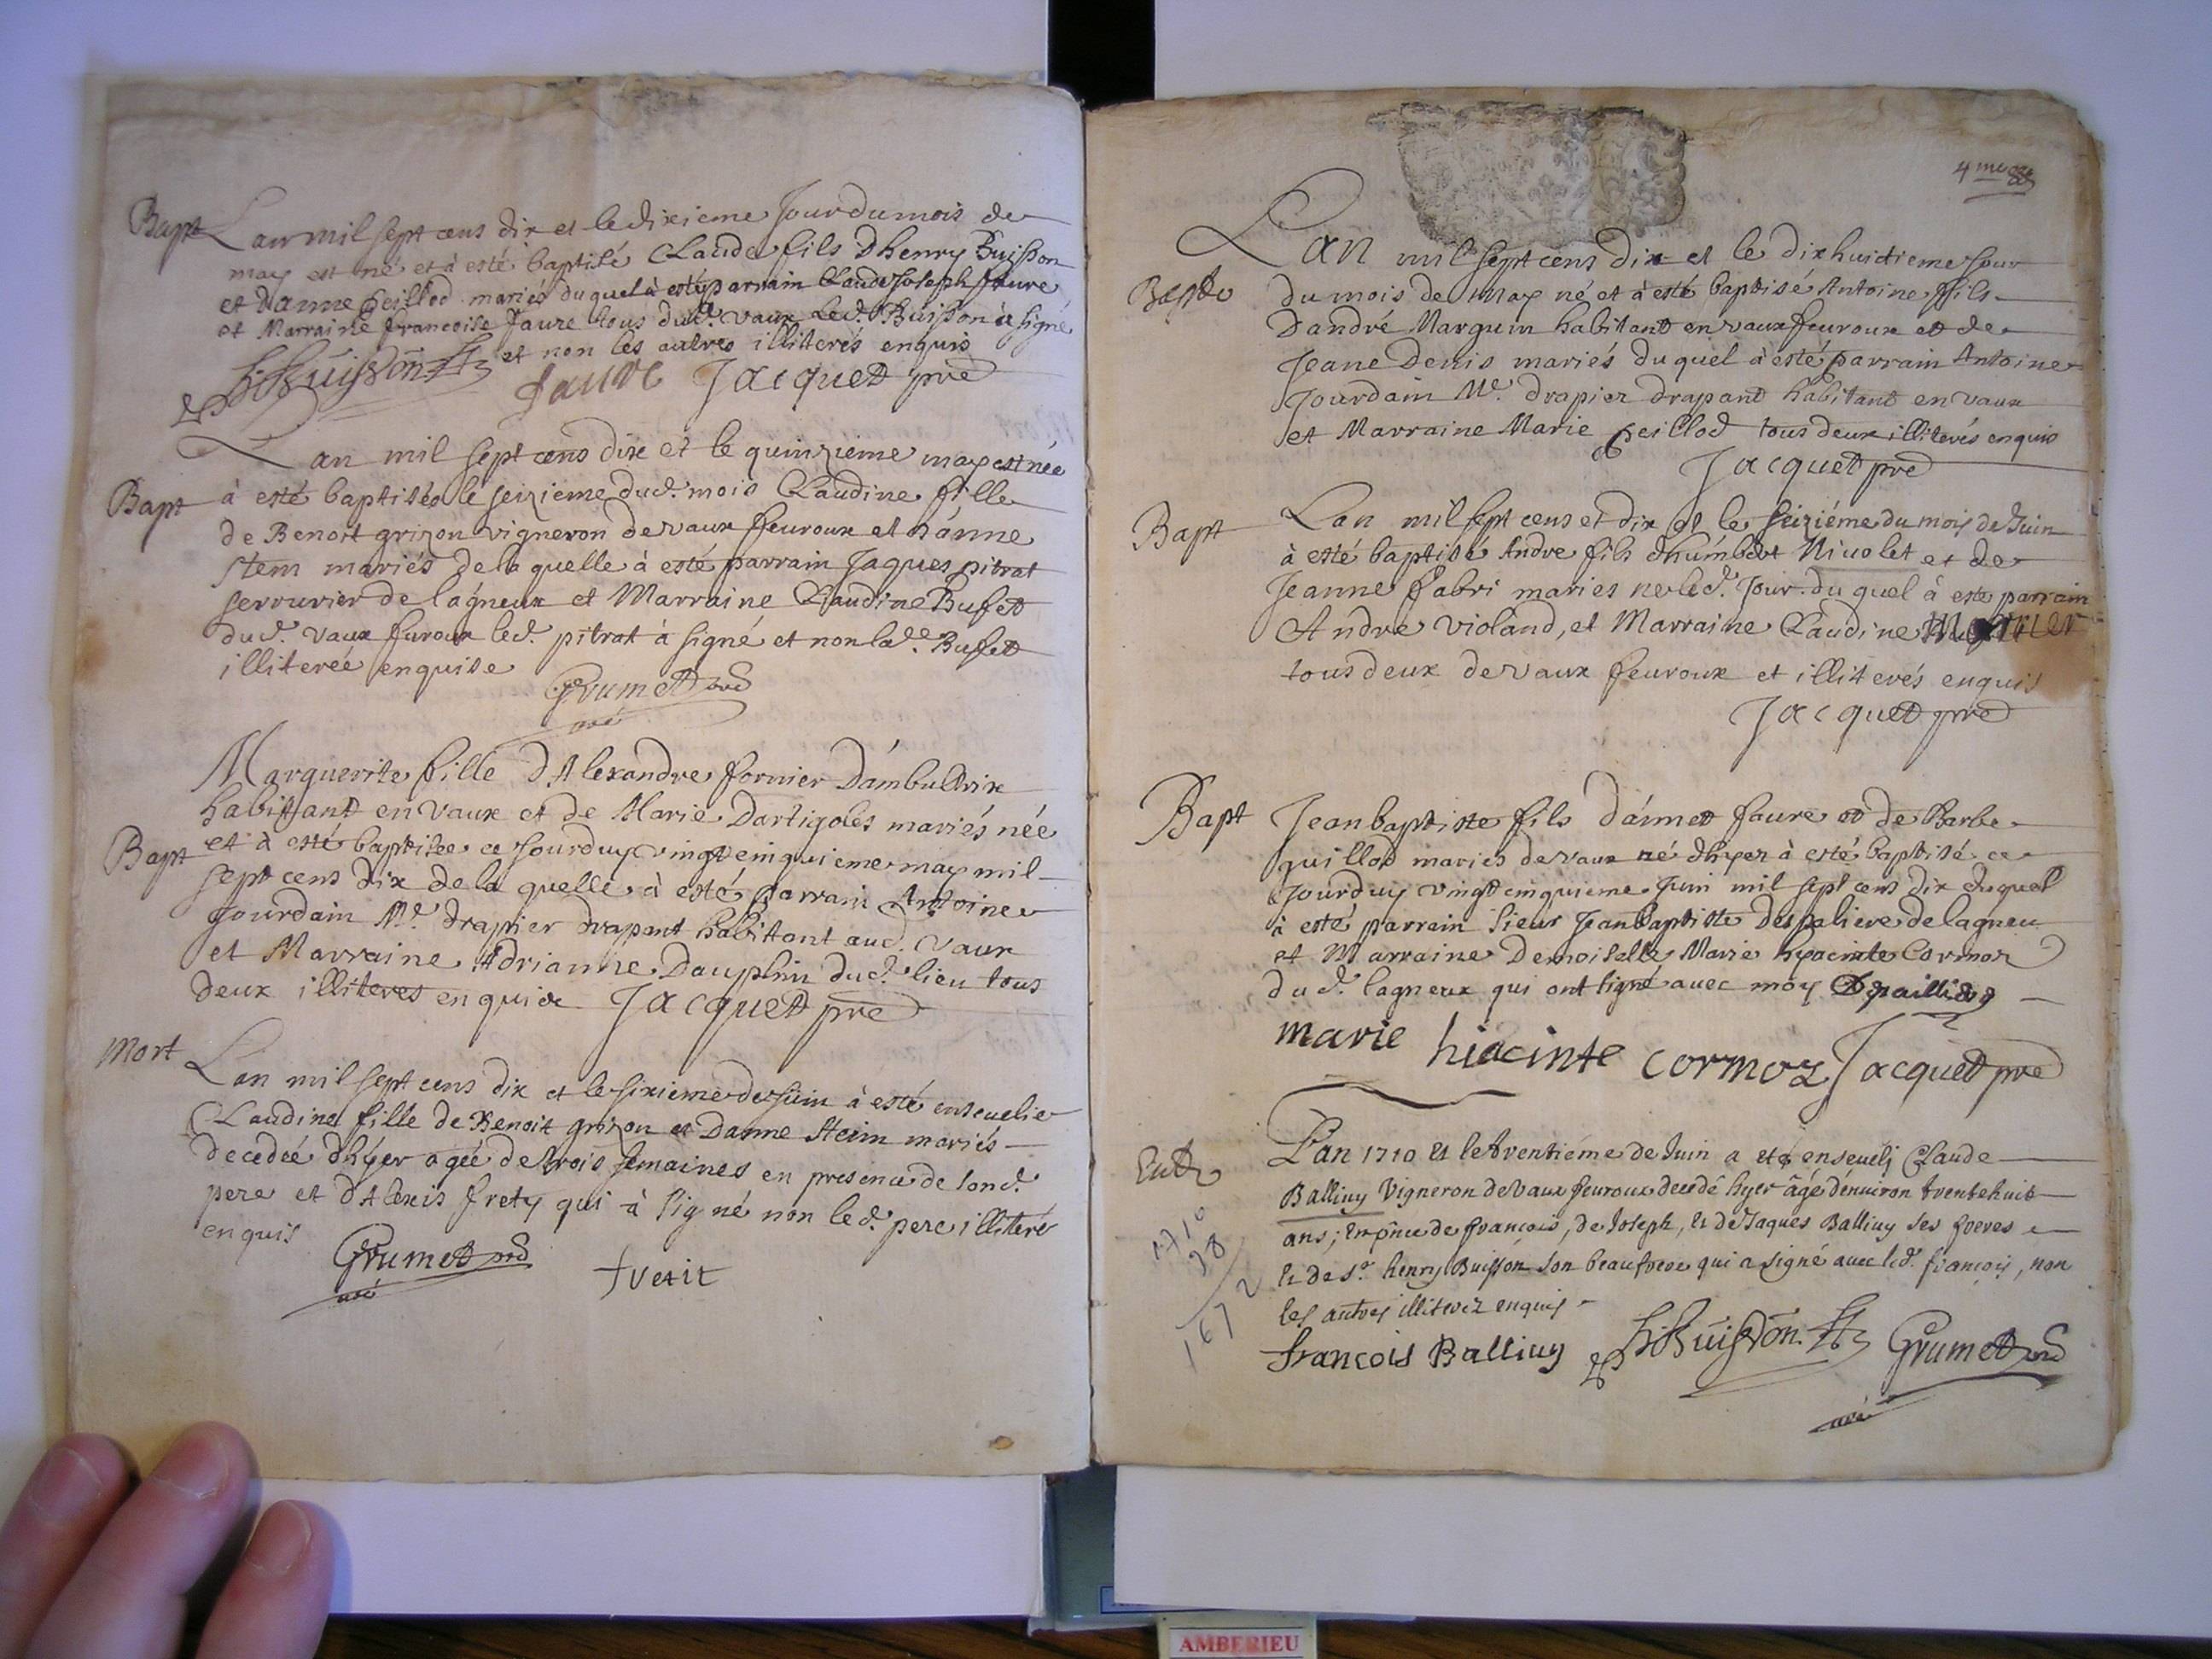 Bapt Lan mil sept cens dix et le dixieme Jour du mois de
may est né et à esté baptisé Claude fils Dhenry Buisson
et danne peillod mariés du quel à esté parrain Claude Joseph faure
et Marraine francoise faure tous dud. vaux led. Buisson à signé
et non les autres illiterés enquis
hBuisson faure Jacquet pre
Lan mil sept cens dix et le quinzieme may est née
Bapt à esté baptisée le seizieme dud. mois Claudine fille
de Benoit grizon vigneron de vaux feuroux et danne
stem mariés de la quelle à esté parrain Jaques pitrat
serrurier de lagneux et Marraine Claudine Bufet
dud. vaux furoux led. pitrat à signé et non lade. Bufet
illiterée enquise
Grumet curé
Marguerite fille d'Alexandre fornier Dambutrix
habittant en vaux et de Marie Dartigoles mariés née
Bapt et à esté baptisée ce Jourduy vingt cinquieme may mil
sept cens dix de la quelle à esté parrain Antoine
Jourdain Me. drapier drapant habitant aud. vaux
et Marraine Adrianne Dauphin dud. lieu tous
deux illiteres enquis Jacquet pre
Mort Lan mil sept cens dix et le sixieme de Juin à esté enseuelie
Claudine fille de Benoit grizon et Danne Steim mariés
decedée dhyer agée de trois semaines en presence de sond.
pere et d'Alexis frety qui à signé non led. pere illiteré
enquis
Grumet curé fretit
4me
Lan mil sept cens dix et le dixhuictieme Jour
Bapt du mois de may né et à esté baptisé Antoine fils
Dandré Marguin habitant en vaux feuroux et de
Jeane Denis mariés du quel à esté parrain Antoine
Jourdain Me. drapier drapant habitant en vaux
et Marraine Marie peillod tous deux illiterés enquis
Jacquet pre
Bapt Lan mil sept cens et dix et le seiziéme du mois de Juin
à esté baptisé Andre fils dhumbert Nicolet et de
Jeanne fabri maries ne led. Jour. du quel à este parrain
Andre violand, et Marraine Claudine
tous deux de vaux feuroux et illiterés enquis
Jacquet pre
Bapt Jean baptiste fils dánnet faure et de Barbe
guillod mariés de vaux né dhyer à esté baptisé ce
Jourduy vingt cinquieme Juin mil sept cens dix du quel
à esté parrain sieur Jean baptiste despaliere de lagneu
et Marraine Demoiselle Marie hyacinte Cormoz
dud. lagneux qui ont signé avec moy
marie hiacinte cormoz Jacquet pre
L'an 1710 et le trentiéme de Juin a eté enséuéli Claude
Balliuy Vigneron de vaux feuroux decedé hyer âgé dénuiron trentehuit
ans; en pnce de françois, de Joseph, et de Jaques Balliuy ses freres
et de sr. henry Buisson son beaufrere qui a signé auec led. françois, non
les autres illiterez enquis
françois Balliuy hBuisson Grumet curé
1710
38
1672
AMBERIEU